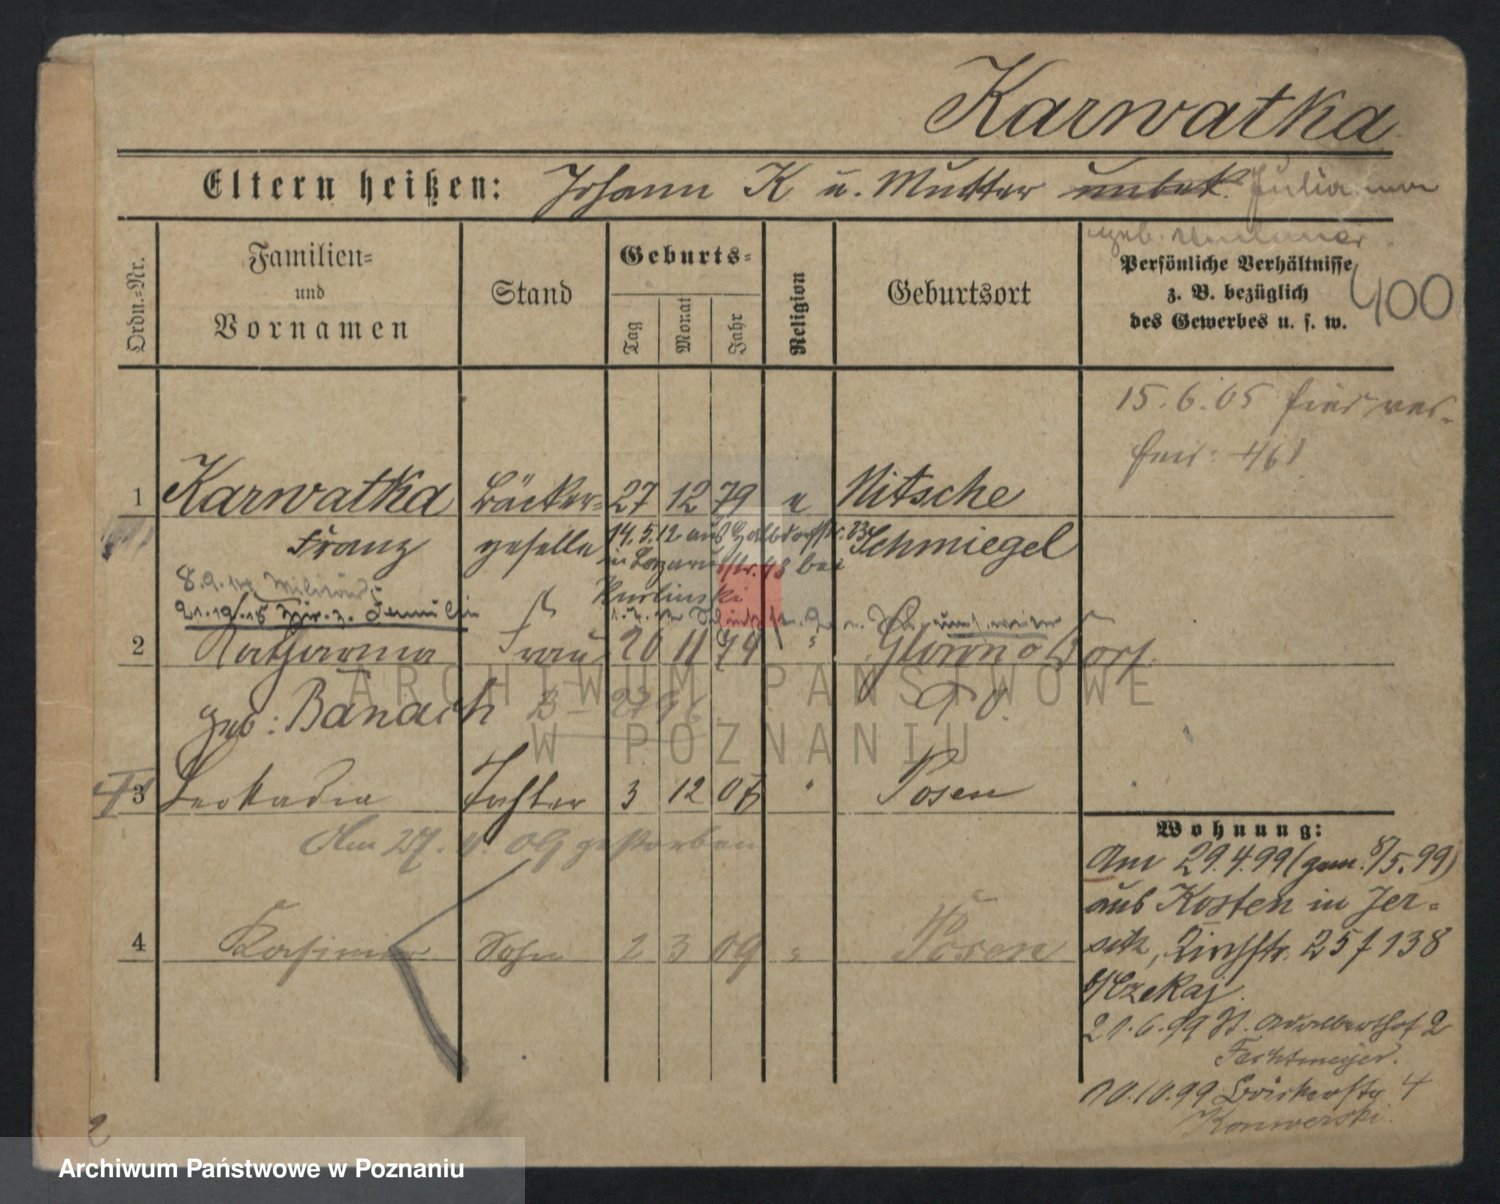 Karwatka
Eltern heißen: Johann K u. Mutter unbek. Julianna
geb.
Ordn.-Nr.
Familien-
und
Vornamen
Stand
Geburts-
Tag
Monat
Jahr
Religion
Geburtsort
Persönliche Verhältnisse
z. B. bezüglich
des Gewerbes u. s. w.
400
15.6.05 hier ver-
heir. 461
1 Karwatka Bäcker- 27 12 79 Nitsche
Franz geselle Schmiegel
14.5.12 aus
bei
8.9.14 Militär
21.12.18 zur. z. Familie
2 Katharina Frau 20 11 79 " Glowno Dorf
geb: Banach P. O.
3 Leokadia Tochter 3 12 07 " Posen
Am 27. 09 gestorben
4 Kasimir Sohn 2 3 09 " Posen
Wohnung:
Am 29.4.99 (gem. 8/5.99)
aus Kosten in Jer-
sitz, Kirchstr. 25 f 138
b/Czekaj.
21.6.99 St. Adalberthof 2
Fechtmeyer.
10.10.99 Bäckerstr 4
Konwerski.
2
ARCHIWUM PAŃSTWOWE
W POZNANIU
Archiwum Państwowe w Poznaniu